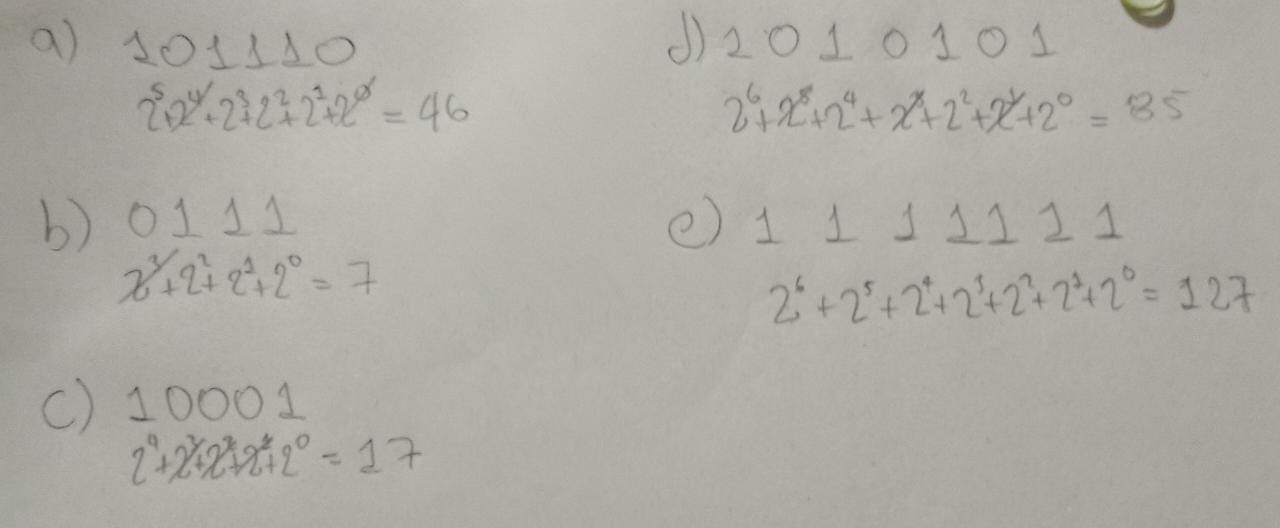 a) 101110
2⁵+2⁴+2³+2²+2¹+2⁰ = 46
b) 0111
2³+2²+2¹+2⁰ = 7
c) 10001
2⁴+2³+2²+2¹+2⁰ = 17
d) 1010101
2⁶+2⁵+2⁴+2³+2²+2¹+2⁰ = 85
e) 1111111
2⁶+2⁵+2⁴+2³+2²+2¹+2⁰ = 127